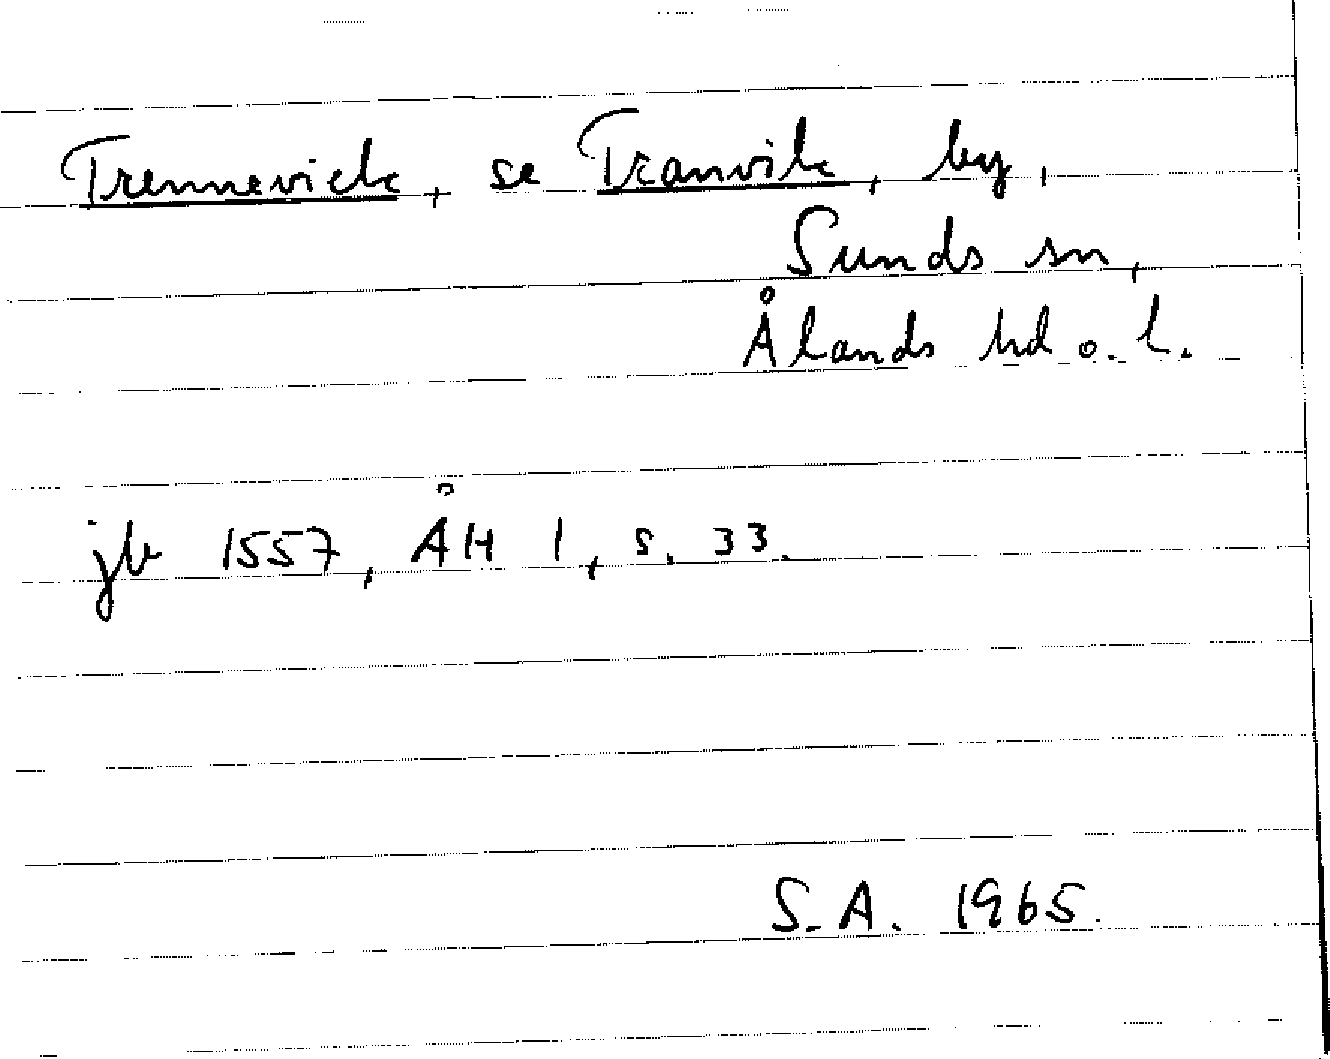 Trennevick, se Tranvik, by,
Sunds sn,
Ålands hd o. l.
jb 1557, ÅH 1, s. 33.
S.A. 1965.